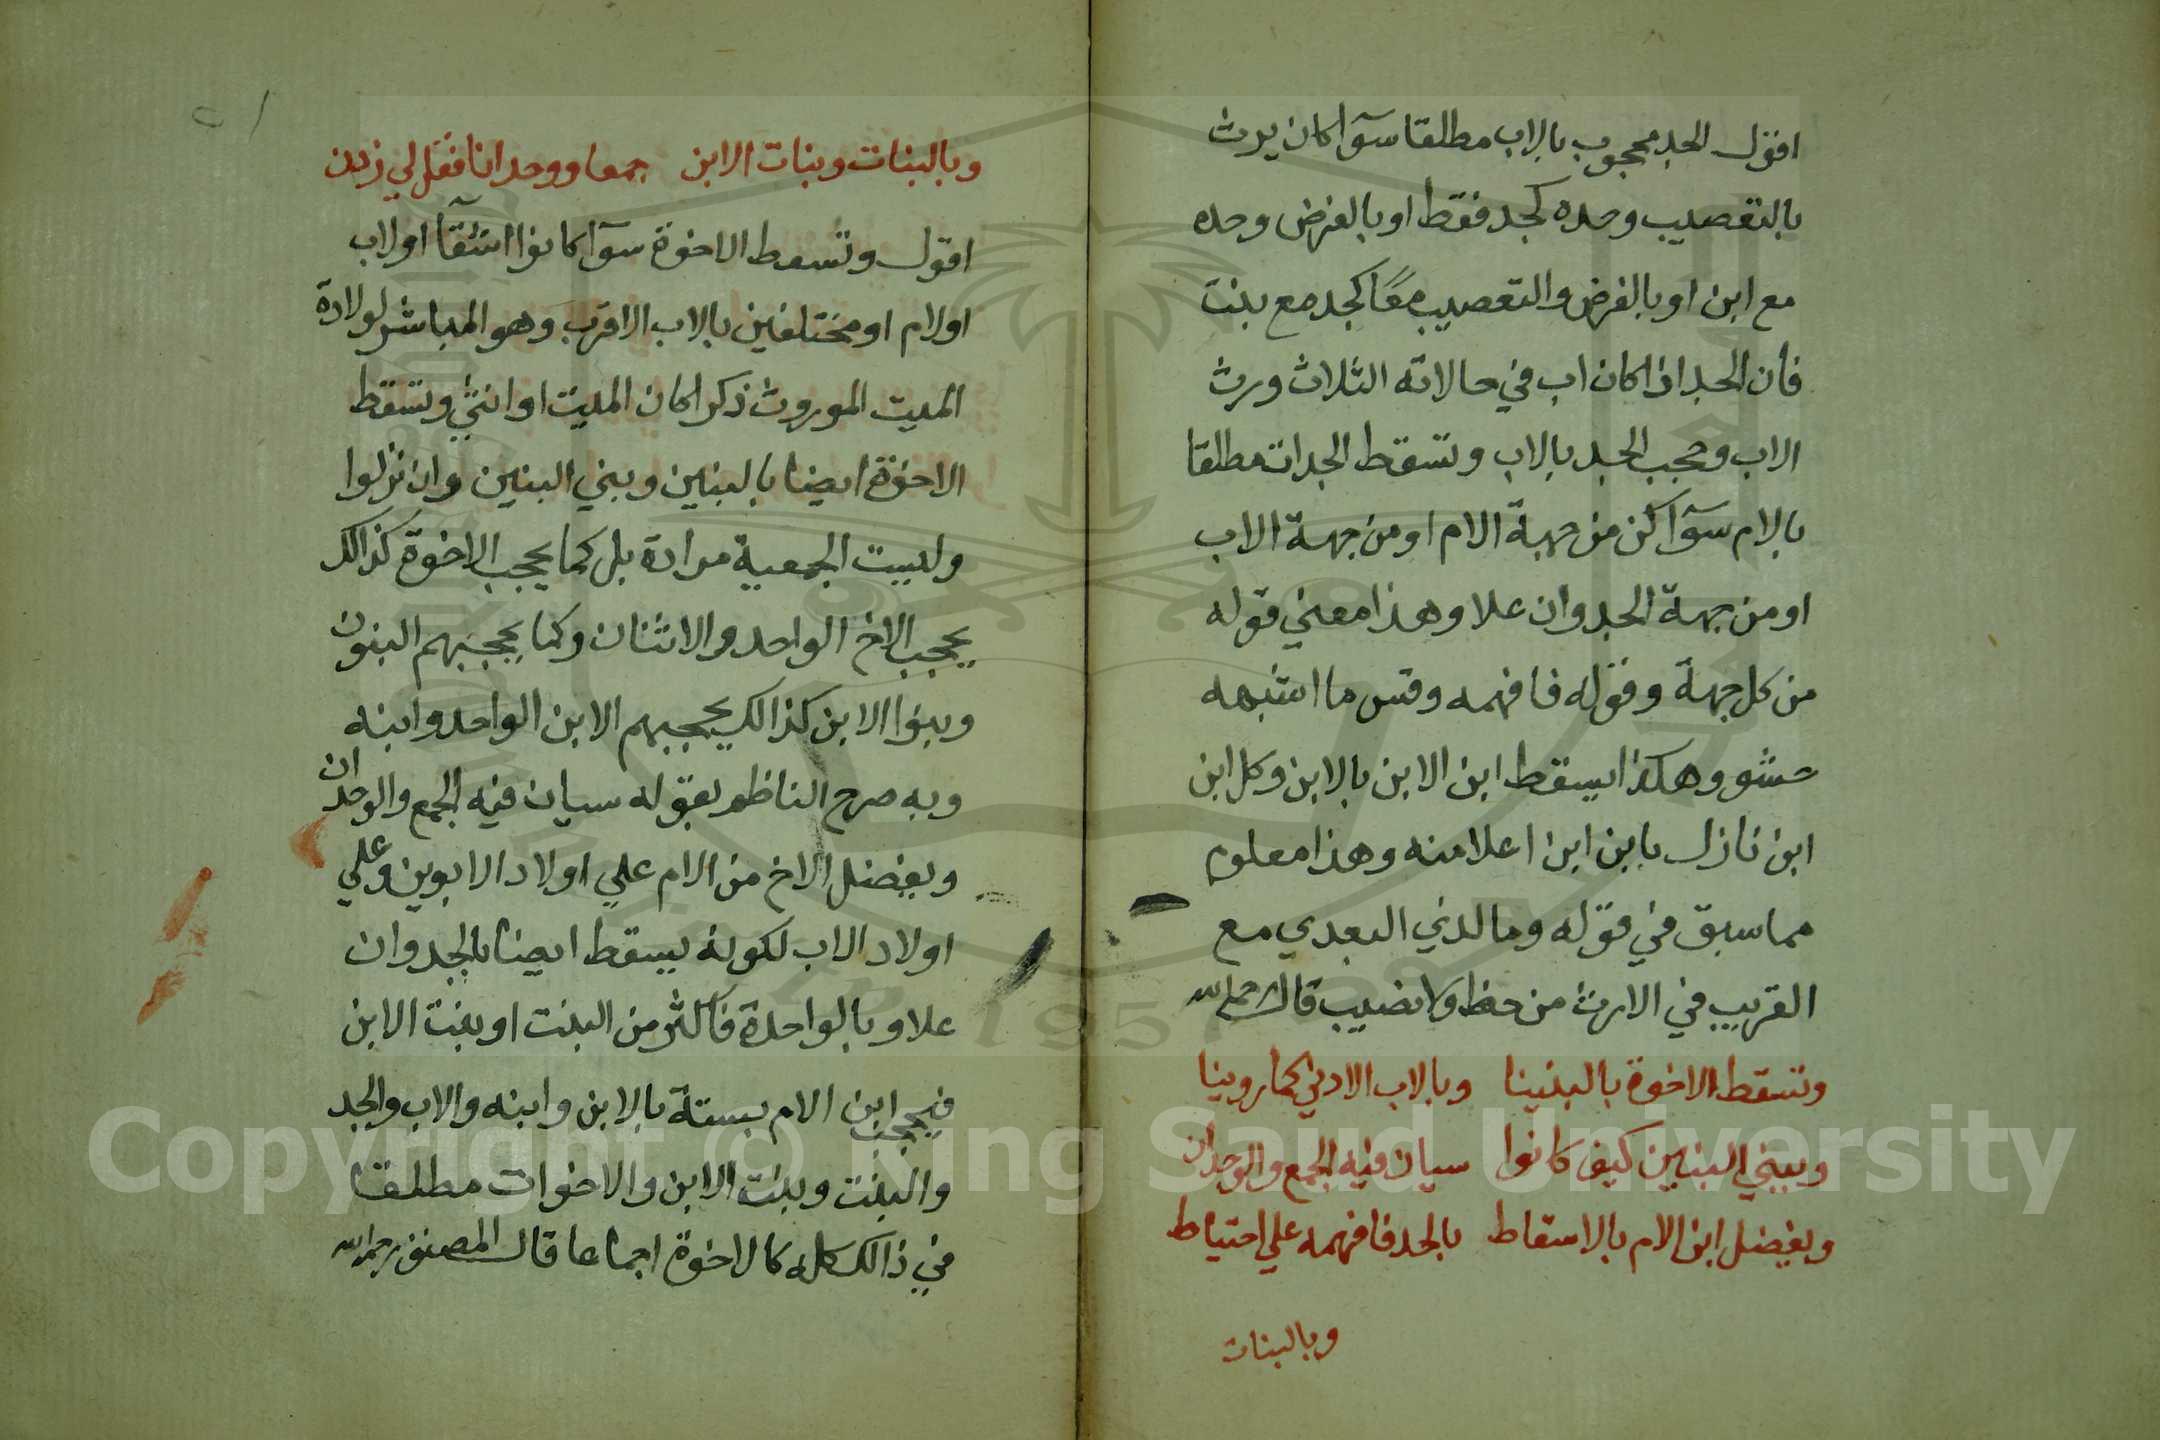 اقول الجد محجوب بالاب مطلقا سوآ كان يرث
بالتعصيب وحده كجد فقط او بالفرض وحده
مع ابن او بالفرض والتعصيب معًا كجد مع بنت
فان الجد اذا كان اب في حالاته الثلاث ورث
الاب وحجب الجد بالاب وتسقط الجدات مطلقا
بالام سوآ كن من جهة الام او من جهة الاب
او من جهة الجد وان علا وهذا معني قوله
من كل جهة وقوله فافهمه وقس ما اشبهه
حشو وهكذا يسقط ابن الابن بالابن وكل ابن
ابن نازل بابن ابن اعلا منه وهذا معلوم
مما سبق في قوله وما لذي البعدي مع
القريب في الارث من حظ ولا نصيب قال رحمه الله
وتسقط الاخوة بالبنينا وبالاب الادني كما روينا
وببني البنين كيف كانوا سيان فيه الجمع والوحدان
ويفضل ابن الام بالاسقاط بالجد فافهمه علي احتياط
وبالبنات
وبالبنات وبنات الابن جمعا ووحدانا فقل لي زدن
اقول وتسقط الاخوة سوآ كانوا اشقآ او لاب
او لام او مختلفين بالاب الاقرب وهو المباشر لولادة
الميت الموروث ذكرا كان الميت او انثي وتسقط
الاخوة ايضا بالبنين وبني البنين وان نزلوا
وليست الجمعية مرادة بل كما يحجب الاخوة كذالك
يحجب الاخ الواحد والاثنان وكما يحجبهم البنون
وبنوا الابن كذالك يحجبهم الابن الواحد وابنه
وبه صرح الناظم بقوله سيان فيه الجمع والوحدان
ويفضل الاخ من الام علي اولاد الابوين وعلي
اولاد الاب لكونه يسقط ايضا بالجد وان
علا وبالواحدة فاكثر من البنت او بنت الابن
فيحجب ابن الام بستة بالابن وابنه والاب والجد
والبنت وبنت الابن والاخوات مطلقا
في ذالك كله كالاخوة اجماعا قال المصنف رحمه الله
Copyright © King Saud University
1957